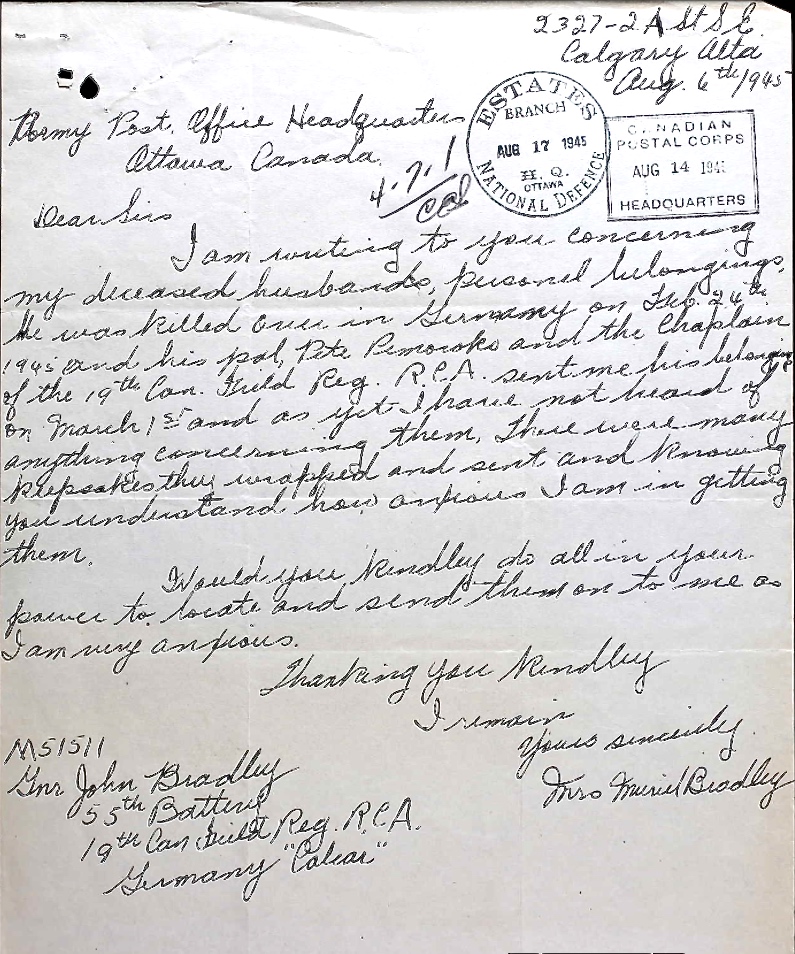 2327-2A St S.E.
Calgary Alta
Aug. 6th/1945
Army Post. Office Headquarters
Ottawa Canada.
ESTATES
BRANCH
AUG 17 1945
H. Q.
OTTAWA
NATIONAL DEFENCE
CANADIAN
POSTAL CORPS
AUG 14 194
HEADQUARTERS
4.7.1
Dear Sirs
I am writing to you concerning
my deceased husbands, personel belongings.
He was killed over in Germany on Feb. 24th
1945 and his pal, Pete and the Chaplain
of the 19th Can. Field Reg. R.C.A. sent me his belongings
on March 1st and as yet I have not heard of
anything concerning them. There were many
keepsakes they wrapped and sent and knowing
you understand how anxious I am in getting
them.
Would you kindley do all in your
power to locate and send them on to me as
I am very anxious.
Thanking you kindley
I remain
Yours sincerely
Mrs Muriel Bradley
M51511
Gnr John Bradley
55th Battery
19th Can Field Reg. R.C.A.
Germany